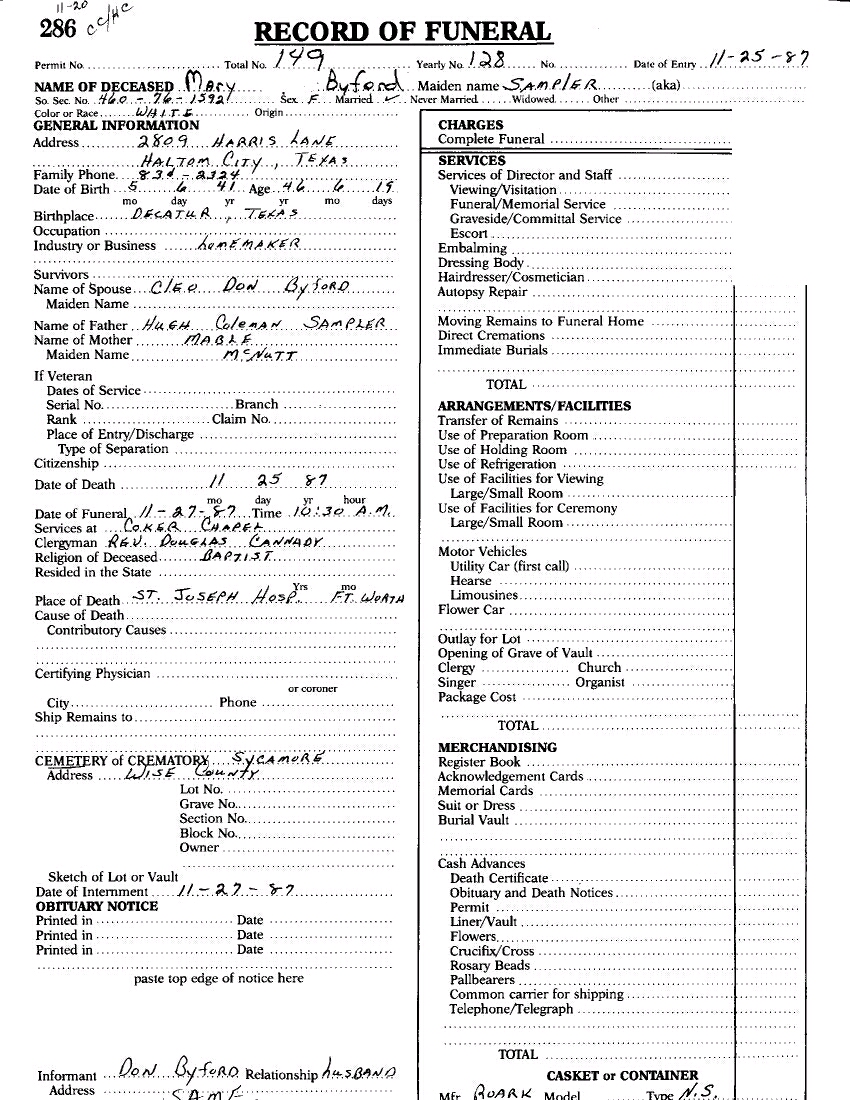 11-20
286 cc/HC
RECORD OF FUNERAL
Permit No. Total No. 149 Yearly No. 128 No. Date of Entry 11-25-87
NAME OF DECEASED Mary Byford Maiden name SAMPLER (aka)
So. Sec. No. 460-76-1592 Sex F Married ✓ Never Married Widowed Other
Color or Race WHITE Origin
GENERAL INFORMATION
Address 2809 HARRIS LANE
HALTOM CITY, TEXAS
Family Phone 834-2324
Date of Birth 5 6 41 Age 46 6 19
mo day yr yr mo days
Birthplace DECATUR, TEXAS
Occupation
Industry or Business HOMEMAKER
Survivors
Name of Spouse CLEO DON BYFORD
Maiden Name
Name of Father HUGH COLEMAN SAMPLER
Name of Mother MABLE
Maiden Name McNUTT
If Veteran
Dates of Service
Serial No. Branch
Rank Claim No.
Place of Entry/Discharge
Type of Separation
Citizenship
Date of Death 11 25 87
mo day yr hour
Date of Funeral 11-27-87 Time 10:30 A.M.
Services at COKER CHAPEL
Clergyman REV. DOUGLAS CANNADY
Religion of Deceased BAPTIST
Resided in the State
Yrs mo
Place of Death ST. JOSEPH HOSP. FT. WORTH
Cause of Death
Contributory Causes
Certifying Physician
or coroner
City Phone
Ship Remains to
CEMETERY of CREMATORY SYCAMORE
Address WISE COUNTY
Lot No.
Grave No.
Section No.
Block No.
Owner
Sketch of Lot or Vault
Date of Internment 11-27-87
OBITUARY NOTICE
Printed in Date
Printed in Date
Printed in Date
paste top edge of notice here
Informant DON BYFORD Relationship HUSBAND
Address SAME
CHARGES
Complete Funeral
SERVICES
Services of Director and Staff
Viewing/Visitation
Funeral/Memorial Service
Graveside/Committal Service
Escort
Embalming
Dressing Body
Hairdresser/Cosmetician
Autopsy Repair
Moving Remains to Funeral Home
Direct Cremations
Immediate Burials
TOTAL
ARRANGEMENTS/FACILITIES
Transfer of Remains
Use of Preparation Room
Use of Holding Room
Use of Refrigeration
Use of Facilities for Viewing
Large/Small Room
Use of Facilities for Ceremony
Large/Small Room
Motor Vehicles
Utility Car (first call)
Hearse
Limousines
Flower Car
Outlay for Lot
Opening of Grave of Vault
Clergy Church
Singer Organist
Package Cost
TOTAL
MERCHANDISING
Register Book
Acknowledgement Cards
Memorial Cards
Suit or Dress
Burial Vault
Cash Advances
Death Certificate
Obituary and Death Notices
Permit
Liner/Vault
Flowers
Crucifix/Cross
Rosary Beads
Pallbearers
Common carrier for shipping
Telephone/Telegraph
TOTAL
CASKET or CONTAINER
Mfr. ROARK Model Type N.S.